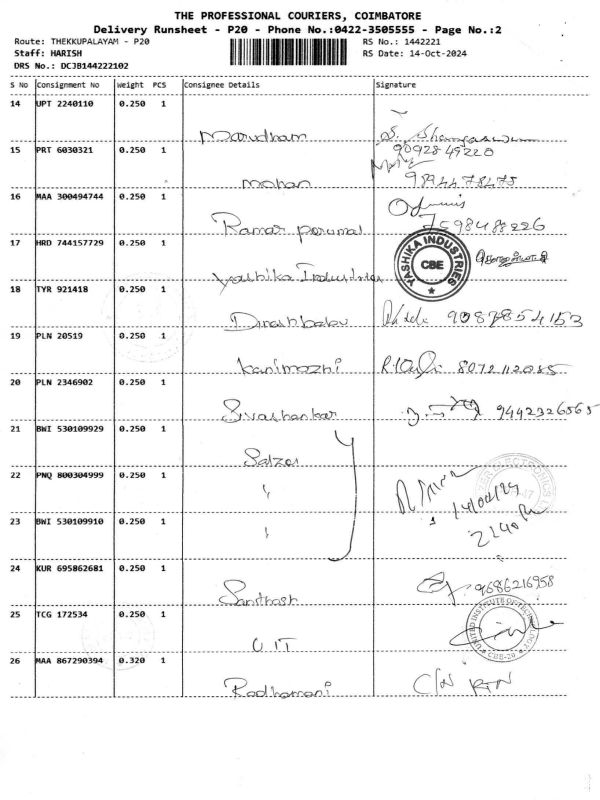 THE PROFESSIONAL COURIERS, COIMBATORE
Delivery Runsheet - P20 - Phone No.:0422-3505555 - Page No.:2
Route: THEKKUPALAYAM - P20 RS No.: 1442221
Staff: HARISH RS Date: 14-Oct-2024
DRS No.: DCJB144222102
S No Consignment No Weight PCS Consignee Details Signature
14 UPT 2240110 0.250 1
Marudham
9092849220
15 PRT 6030321 0.250 1
mohan 9894478478
16 MAA 300494744 0.250 1
Ramar perumal 7598488226
17 HRD 744157729 0.250 1
YASHIKA INDUSTRIES
CBE
yashika Industries
18 TYR 921418 0.250 1
Dineshbabu 9087854153
19 PLN 20519 0.250 1
Kanimozhi 8072112085
20 PLN 2346902 0.250 1
Sivashankar 9442326565
21 BWI 530109929 0.250 1
Salzer
22 PNQ 800304999 0.250 1
"
23 BWI 530109910 0.250 1
"
24 KUR 695862681 0.250 1
Santhosh 9686216958
25 TCG 172534 0.250 1
UNITED INSTITUTE OF TECHNOLOGY
CBE-20
UIT
26 MAA 867290394 0.320 1
Radhamani C/N RTN